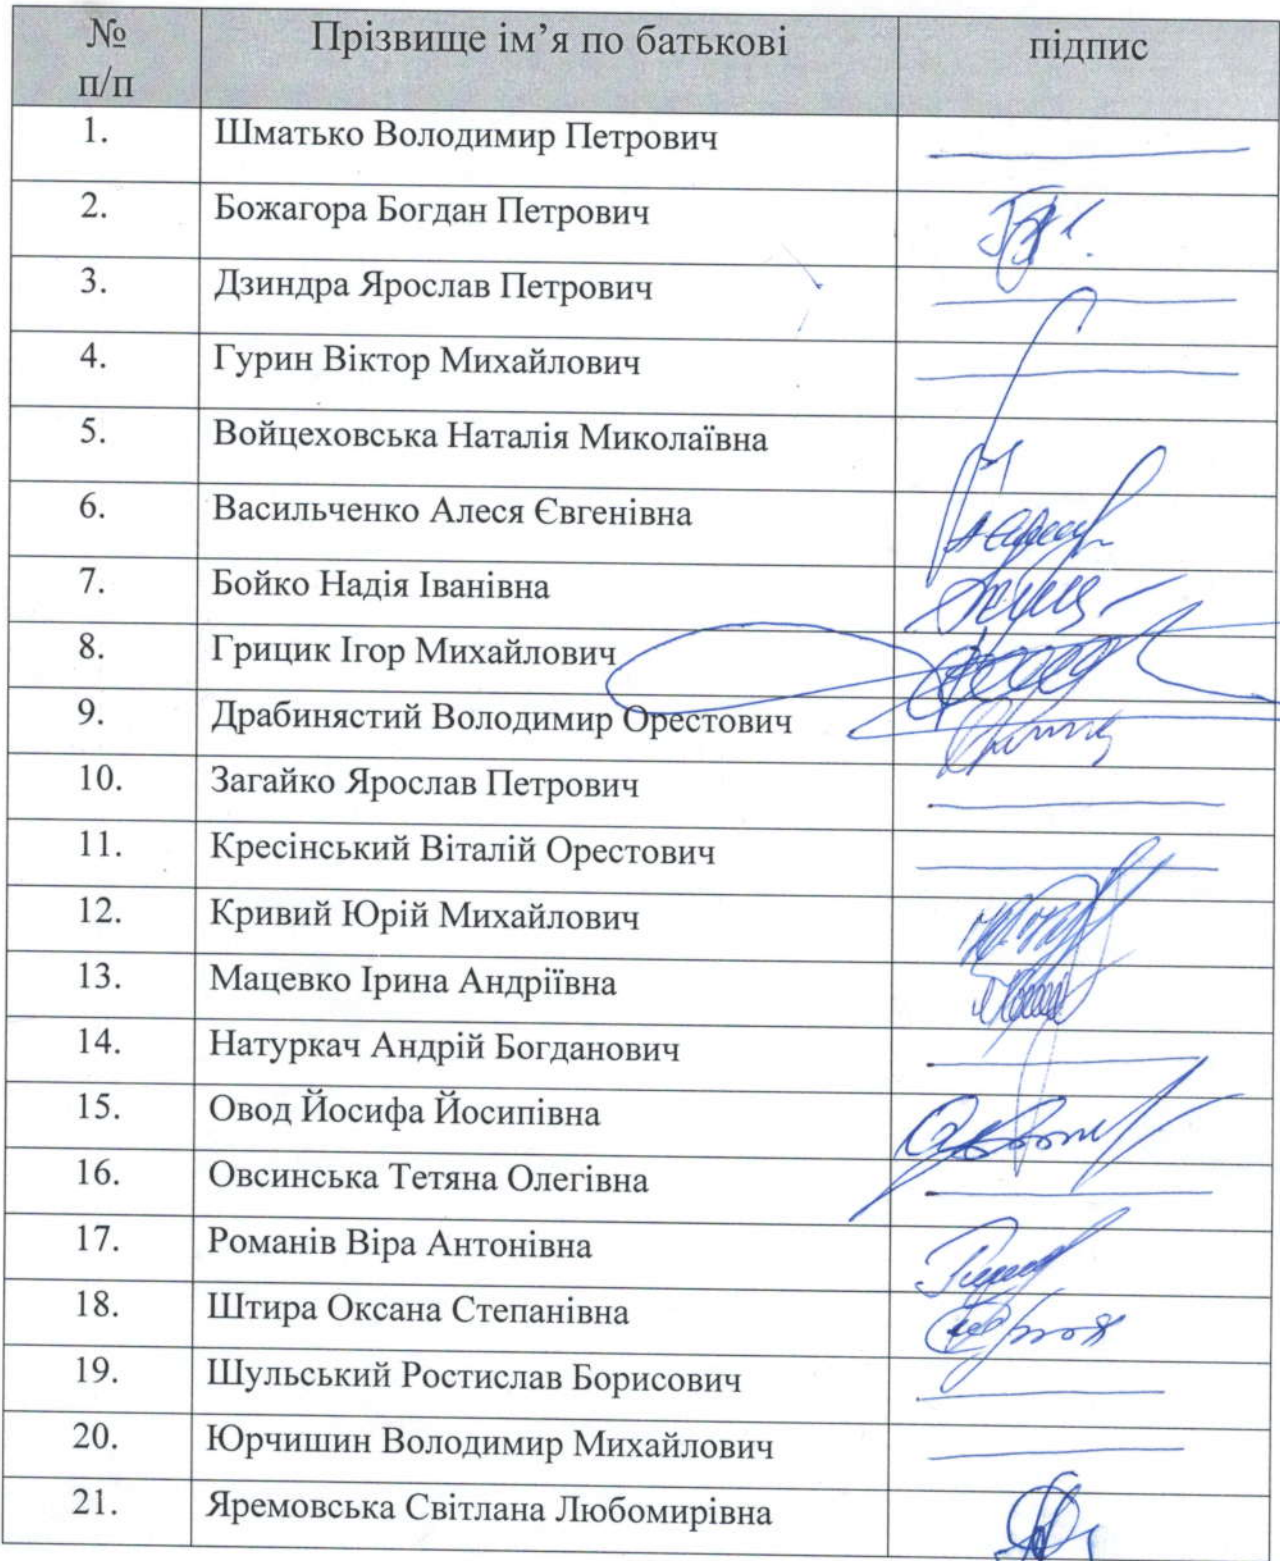 № п/п Прізвище ім’я по батькові підпис
1. Шматько Володимир Петрович
2. Божагора Богдан Петрович
3. Дзиндра Ярослав Петрович
4. Гурин Віктор Михайлович
5. Войцеховська Наталія Миколаївна
6. Васильченко Алеся Євгенівна
7. Бойко Надія Іванівна
8. Грицик Ігор Михайлович
9. Драбинястий Володимир Орестович
10. Загайко Ярослав Петрович
11. Кресінський Віталій Орестович
12. Кривий Юрій Михайлович
13. Мацевко Ірина Андріївна
14. Натуркач Андрій Богданович
15. Овод Йосифа Йосипівна
16. Овсинська Тетяна Олегівна
17. Романів Віра Антонівна
18. Штира Оксана Степанівна
19. Шульський Ростислав Борисович
20. Юрчишин Володимир Михайлович
21. Яремовська Світлана Любомирівна